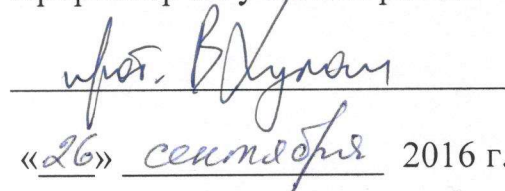 прот. В Хулап
«26» сентября 2016 г.